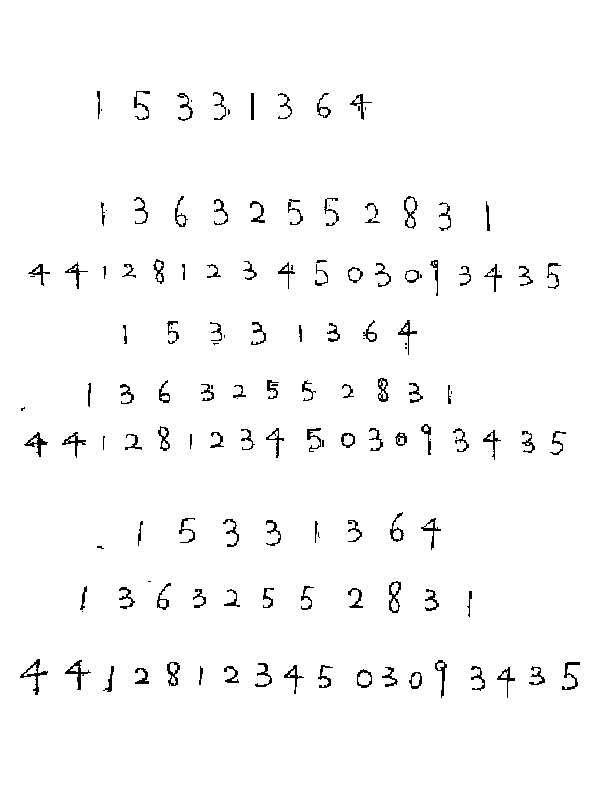 1 5 3 3 1 3 6 4
1 3 6 3 2 5 5 2 8 3 1
4 4 1 2 8 1 2 3 4 5 0 3 0 9 3 4 3 5
1 5 3 3 1 3 6 4
1 3 6 3 2 5 5 2 8 3 1
4 4 1 2 8 1 2 3 4 5 0 3 0 9 3 4 3 5
1 5 3 3 1 3 6 4
1 3 6 3 2 5 5 2 8 3 1
4 4 1 2 8 1 2 3 4 5 0 3 0 9 3 4 3 5